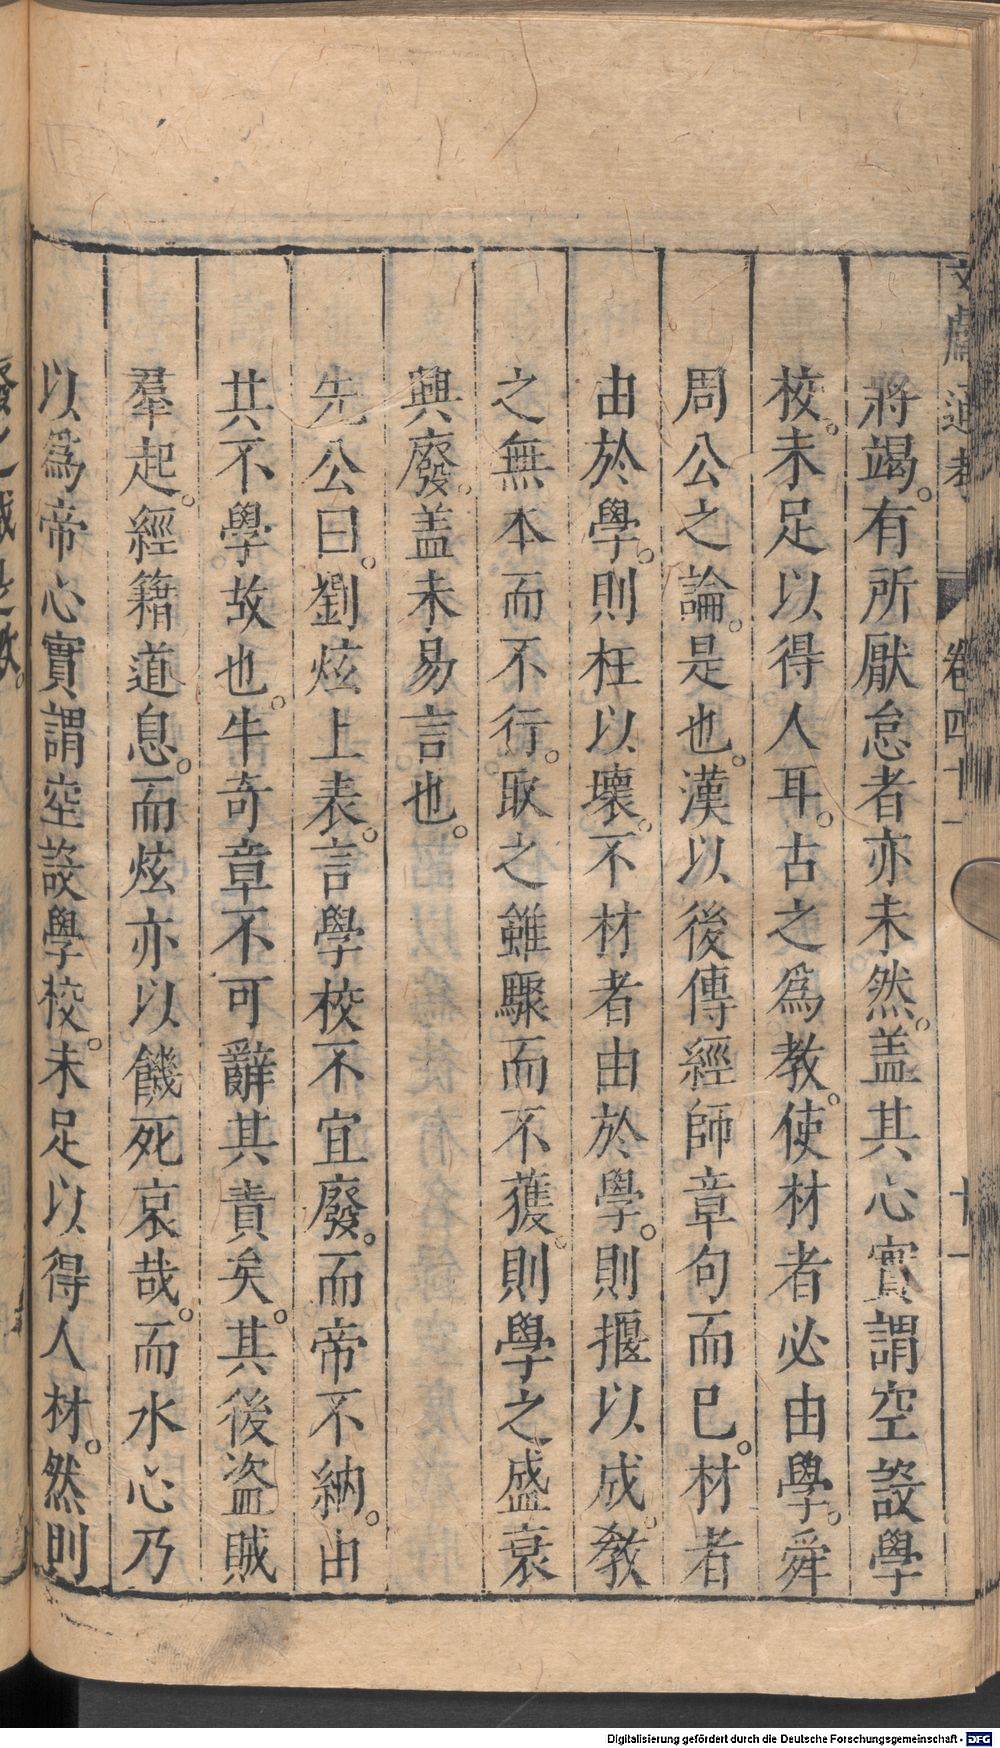 文獻通考 卷四十一 十一
將竭。有所厭怠者亦未然。盖其心實謂空設學
校。未足以得人耳。古之爲教。使材者必由學。舜
周公之論。是也。漢以後傳經師章句而已。材者
由於學。則枉以壞。不材者由於學。則揠以成。教
之無本而不行。取之雖驟而不獲。則學之盛衰
興廢。盖未易言也。
先公曰。劉炫上表。言學校不宜廢。而帝不納。由
其不學故也。牛奇章不可辭其責矣。其後盜賊
羣起。經籍道息。而炫亦以餓死哀哉。而水心乃
以爲帝心實謂空設學校。未足以得人材。然則
Digitalisierung gefördert durch die Deutsche Forschungsgemeinschaft - DFG